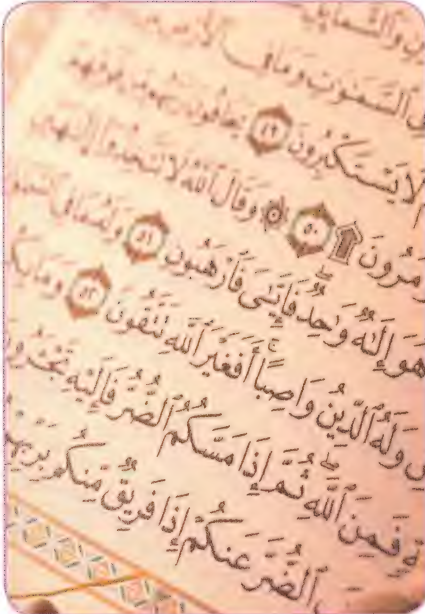 ن والشمايل
السَّمَٰوَٰتِ وَمَا فِي ٱلْأَرْضِ
لَا يَسْتَكْبِرُونَ ٤٩ يَخَافُونَ رَبَّهُم مِّن فَوْقِهِمْ
ؤْمَرُونَ ۩ ٥٠ ۞ وَقَالَ ٱللَّهُ لَا تَتَّخِذُوٓا۟ إِلَٰهَيْنِ
هُوَ إِلَٰهٌ وَٰحِدٌ فَإِيَّٰىَ فَٱرْهَبُونِ ٥١ وَلَهُۥ مَا فِي ٱلسَّمَٰوَ
ضِ وَلَهُ ٱلدِّينُ وَاصِبًا أَفَغَيْرَ ٱللَّهِ تَتَّقُونَ ٥٢ وَمَا بِكُ
ةٍ فَمِنَ ٱللَّهِ ثُمَّ إِذَا مَسَّكُمُ ٱلضُّرُّ فَإِلَيْهِ تَجْـَٔرُونَ
ٱلضُّرَّ عَنكُمْ إِذَا فَرِيقٌ مِّنكُم بِرَبِّهِمْ